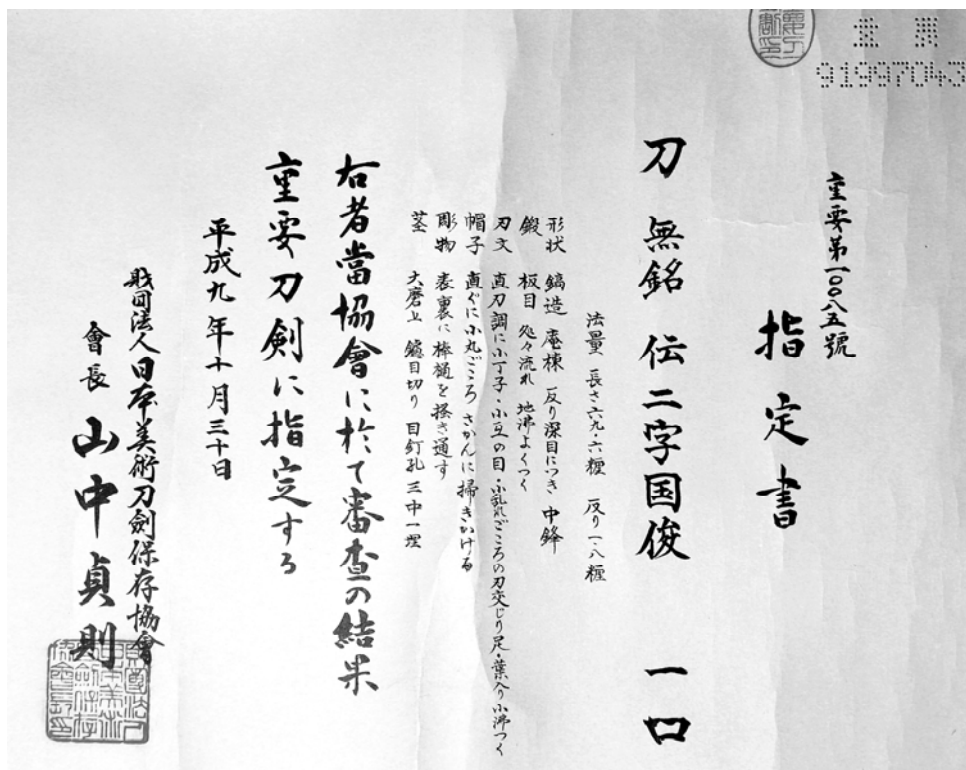 重要第一〇〇八五號
指定書
刀 無銘 伝二字国俊 一口
法量 長さ六九・六糎 反り一・八糎
形状 鎬造 庵棟 反り深目につき 中鋒
鍛 板目 処々流れ 地沸よくつく
刃文 直刃調に小丁子・小互の目・小乱れごころの刃交じり足・葉入り小沸つく
帽子 直ぐに小丸ごころ さかんに掃きかける
彫物 表裏に棒樋を掻き通す
茎 大磨上 鑢目切り 目釘孔 三中一埋
右者當協會に於て審査の結果
重要刀剣に指定する
平成九年十月三十日
財団法人日本美術刀劍保存協會
會長 山中貞則
91997043